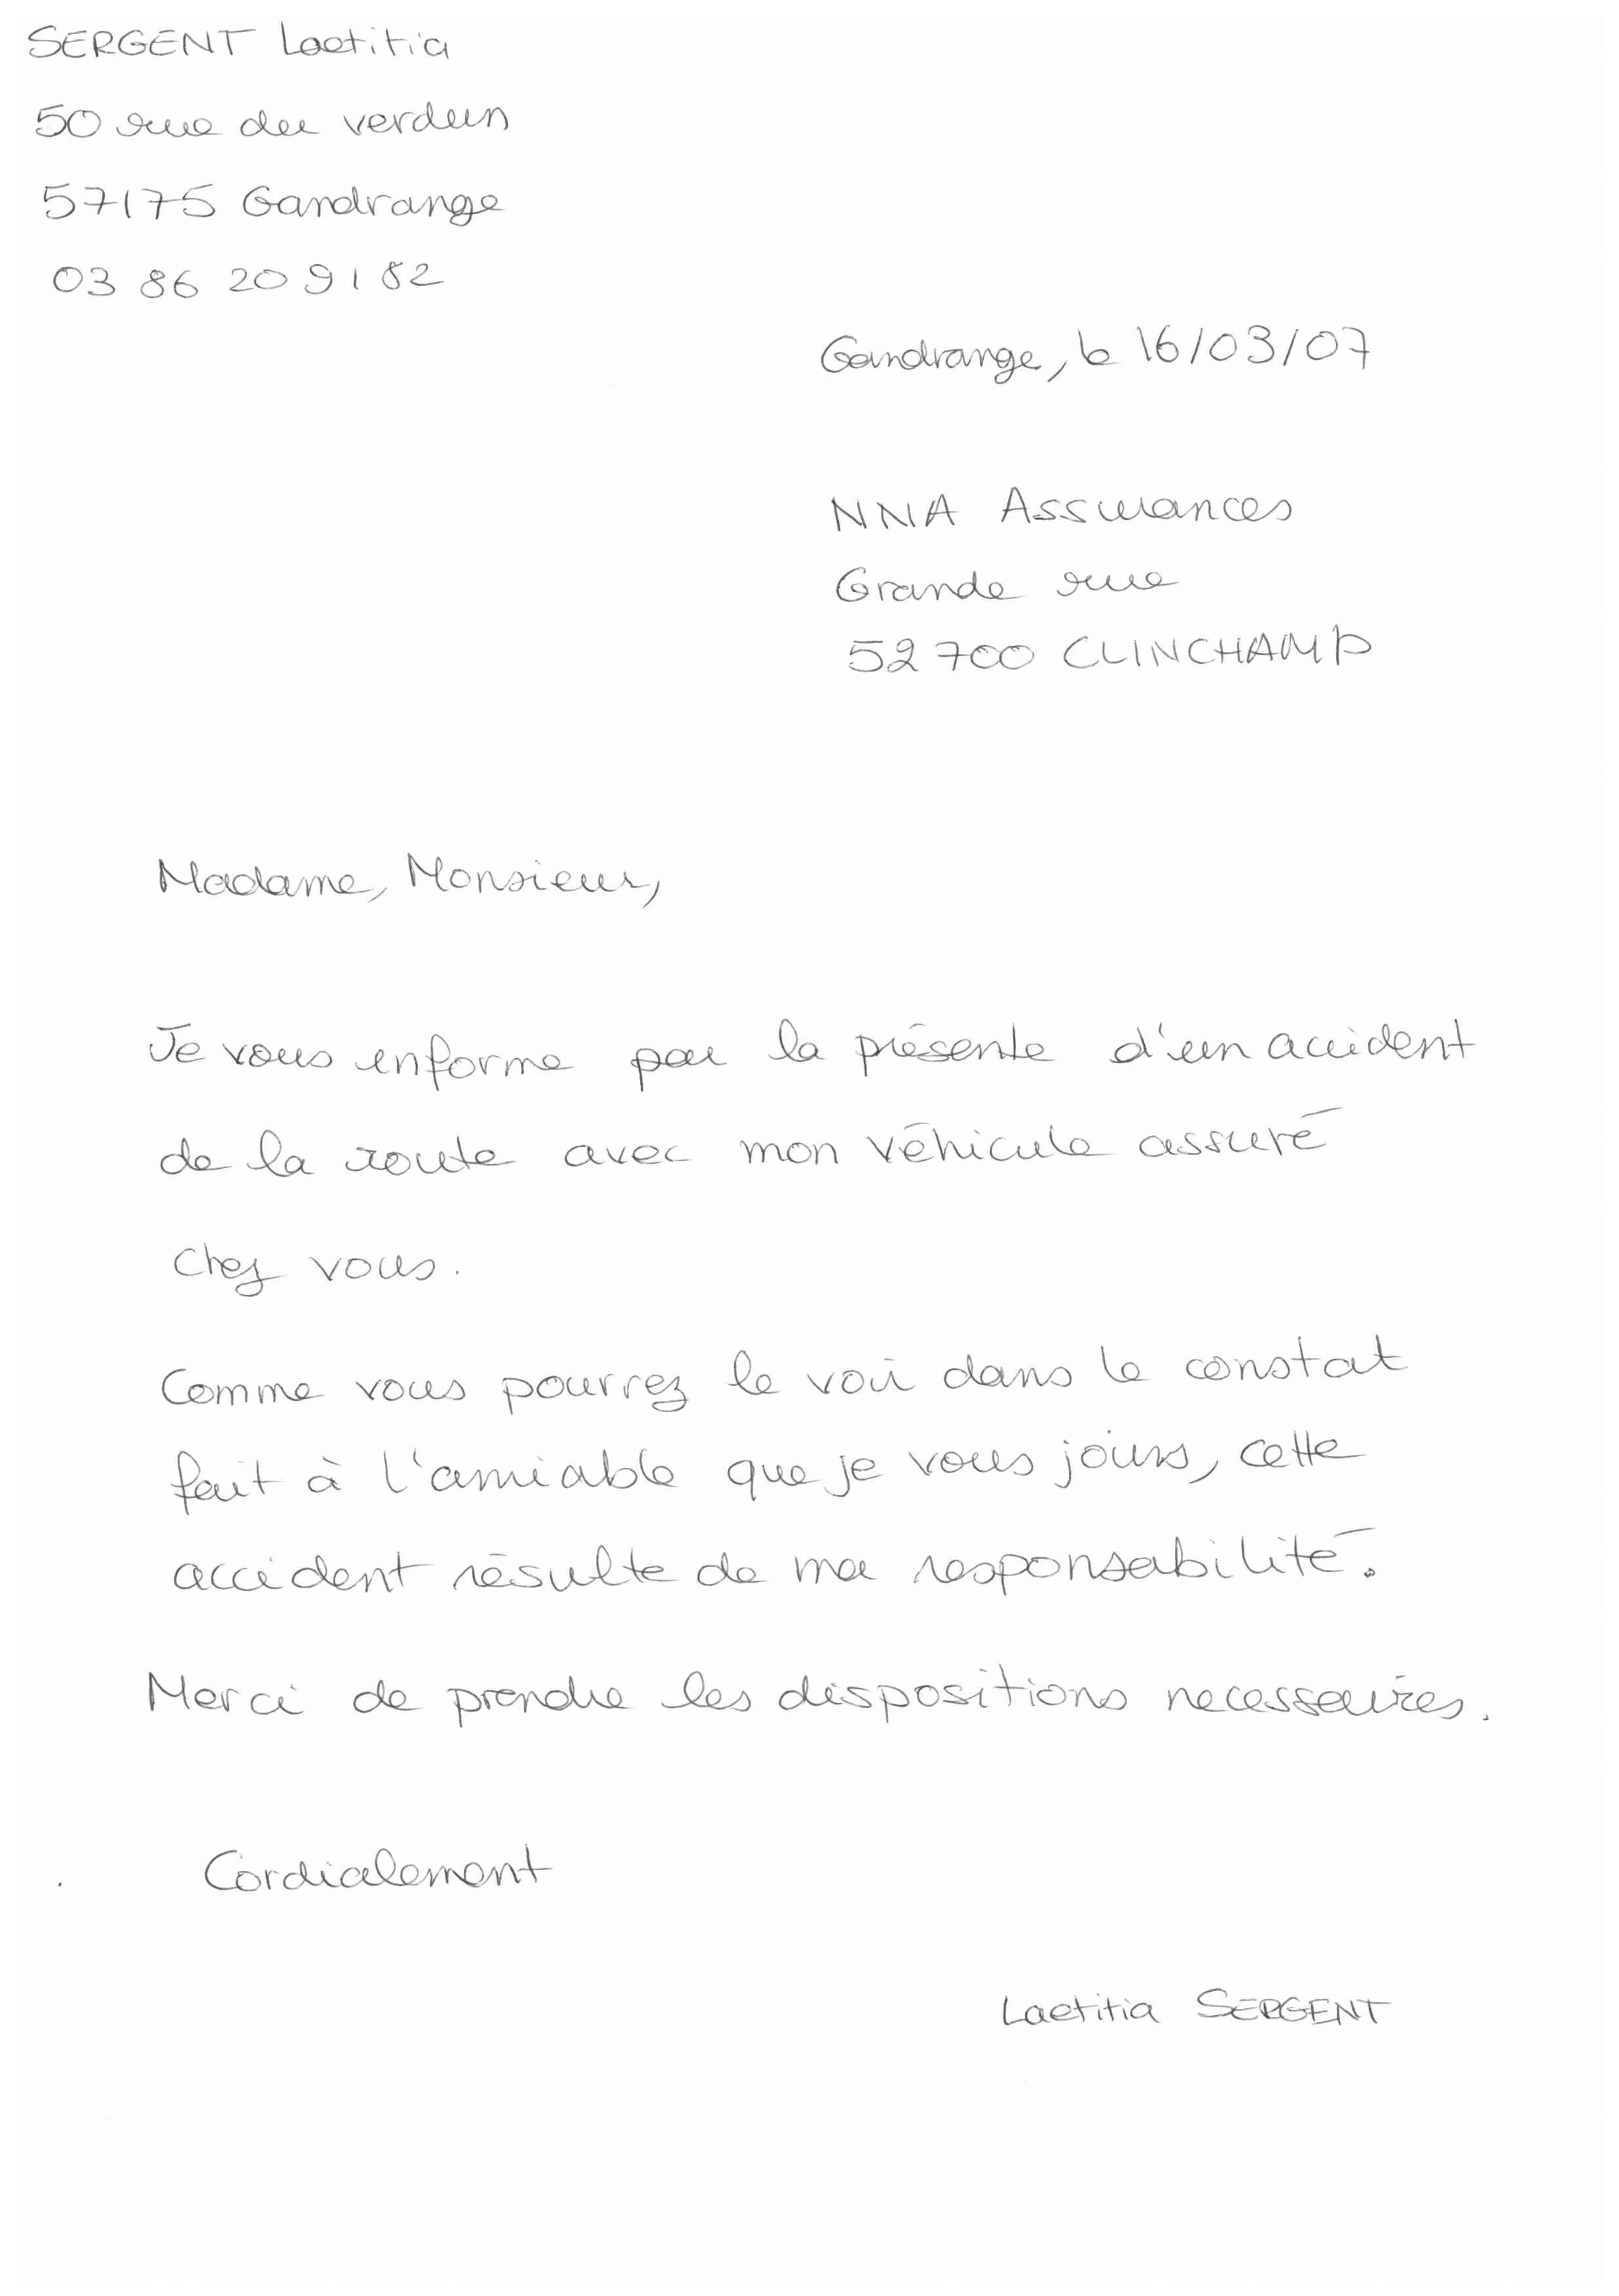 SERGENT Laetitia
50 rue du verdun
57175 Gandrange
03 86 20 91 82
Gandrange, le 16/03/07
NNA Assurances
Grande rue
52700 CLINCHAMP
Madame, Monsieur,
Je vous informe par la présente d'un accident
de la route avec mon véhicule assuré
chez vous.
Comme vous pourrez le voir dans le constat
fait à l'amiable que je vous joins, cette
accident résulte de ma responsabilité.
Merci de prendre les dispositions necessaires.
Cordialement
Laetitia SERGENT